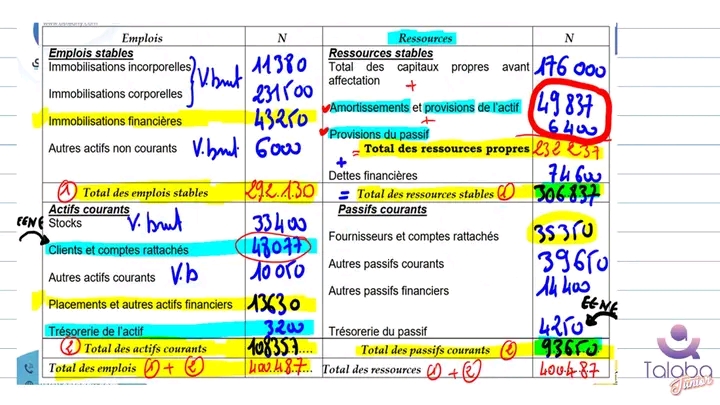 Emplois N Ressources N
Emplois stables
Immobilisations incorporelles 11380
V.brut
Immobilisations corporelles 231500
Immobilisations financières 43250
Autres actifs non courants V.brut 6000
① Total des emplois stables 292.130
Ressources stables
Total des capitaux propres avant affectation 176 000
+
Amortissements et provisions de l'actif 49 837
+
Provisions du passif 6 400
= Total des ressources propres 232 237
+
Dettes financières 74 600
= Total des ressources stables ① 306 837
Actifs courants
EENE
Stocks V. brut 33400
Clients et comptes rattachés 48077
Autres actifs courants V.b 10050
Placements et autres actifs financiers 13630
Trésorerie de l'actif 3200
② Total des actifs courants 108357....
Total des emplois ① + ② 400.487....
Passifs courants
Fournisseurs et comptes rattachés 35350
Autres passifs courants 39650
Autres passifs financiers 14400
EENE
Trésorerie du passif 4250
Total des passifs courants ② 93650
Total des ressources ① + ② 400487
Talaba
Junior